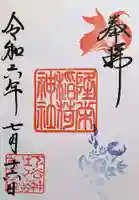 奉拝
隆栄
稲荷
神社
令和六年 七月十二日